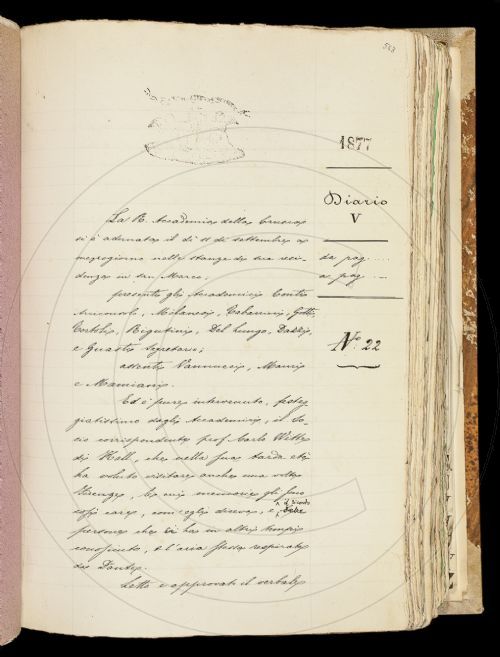 583
1877
Diario
V
da pag. ....
a pag. ....
No. 22
La R. Accademia della Crusca
si è adunata il dì 11 di settembre a
mezzogiorno nelle stanze di sua resi-
denza in San Marco;
presenti gli Accademici Conti
Milanesi, Tabarrini, Gotti,
Tortoli, Rigutini, Del Lungo, Dazzi,
e Guasti segretario;
assenti Vannucci, Mauri
e Mamiani.
Ed è pure intervenuto, festeg-
giatissimo dagli Accademici, il So-
cio corrispondente prof. Carlo Witte
di Hall, che nella sua tarda età
ha voluto visitare anche una volta
Firenze, la cui memoria gli fan
cari, com'egli diceva, e il ricordo
persone che vi ha in altri tempi
conosciuto, e l'aria stessa respirata
da Dante.
Letto e approvato il verbale